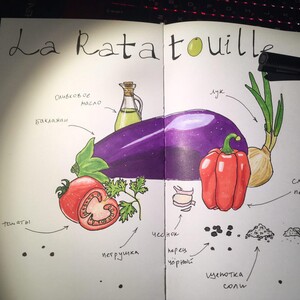 La Ratatouille
оливковое
масло
баклажан
лук
томаты
петрушка
чеснок
перец
чёрный
щепотка
соли